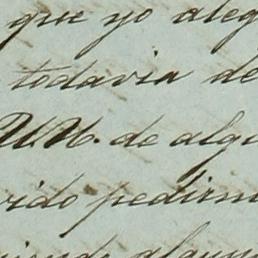 que yo aleg
todavia de
U.U. de algu
rido pedirm